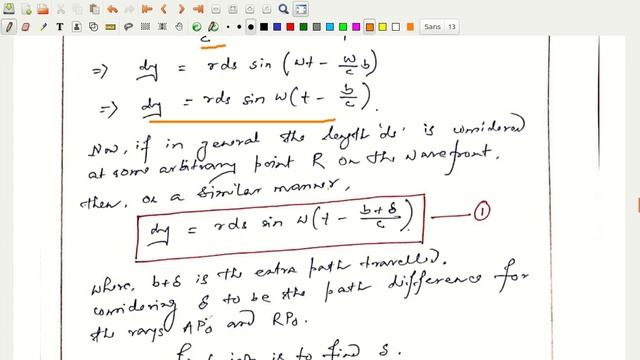 Sans 13
c
=> dy = rds sin (wt - w/c b)
=> dy = rds sin w(t - b/c).
Now, if in general the length 'ds' is considered
at some arbitrary point R on the wavefront,
then, on a similar manner,
dy = rds sin w(t - (b+δ)/c). ①
where, b+δ is the extra path travelled.
considering δ to be the path difference for
the rays AP₀ and RP₀.
is to find δ.